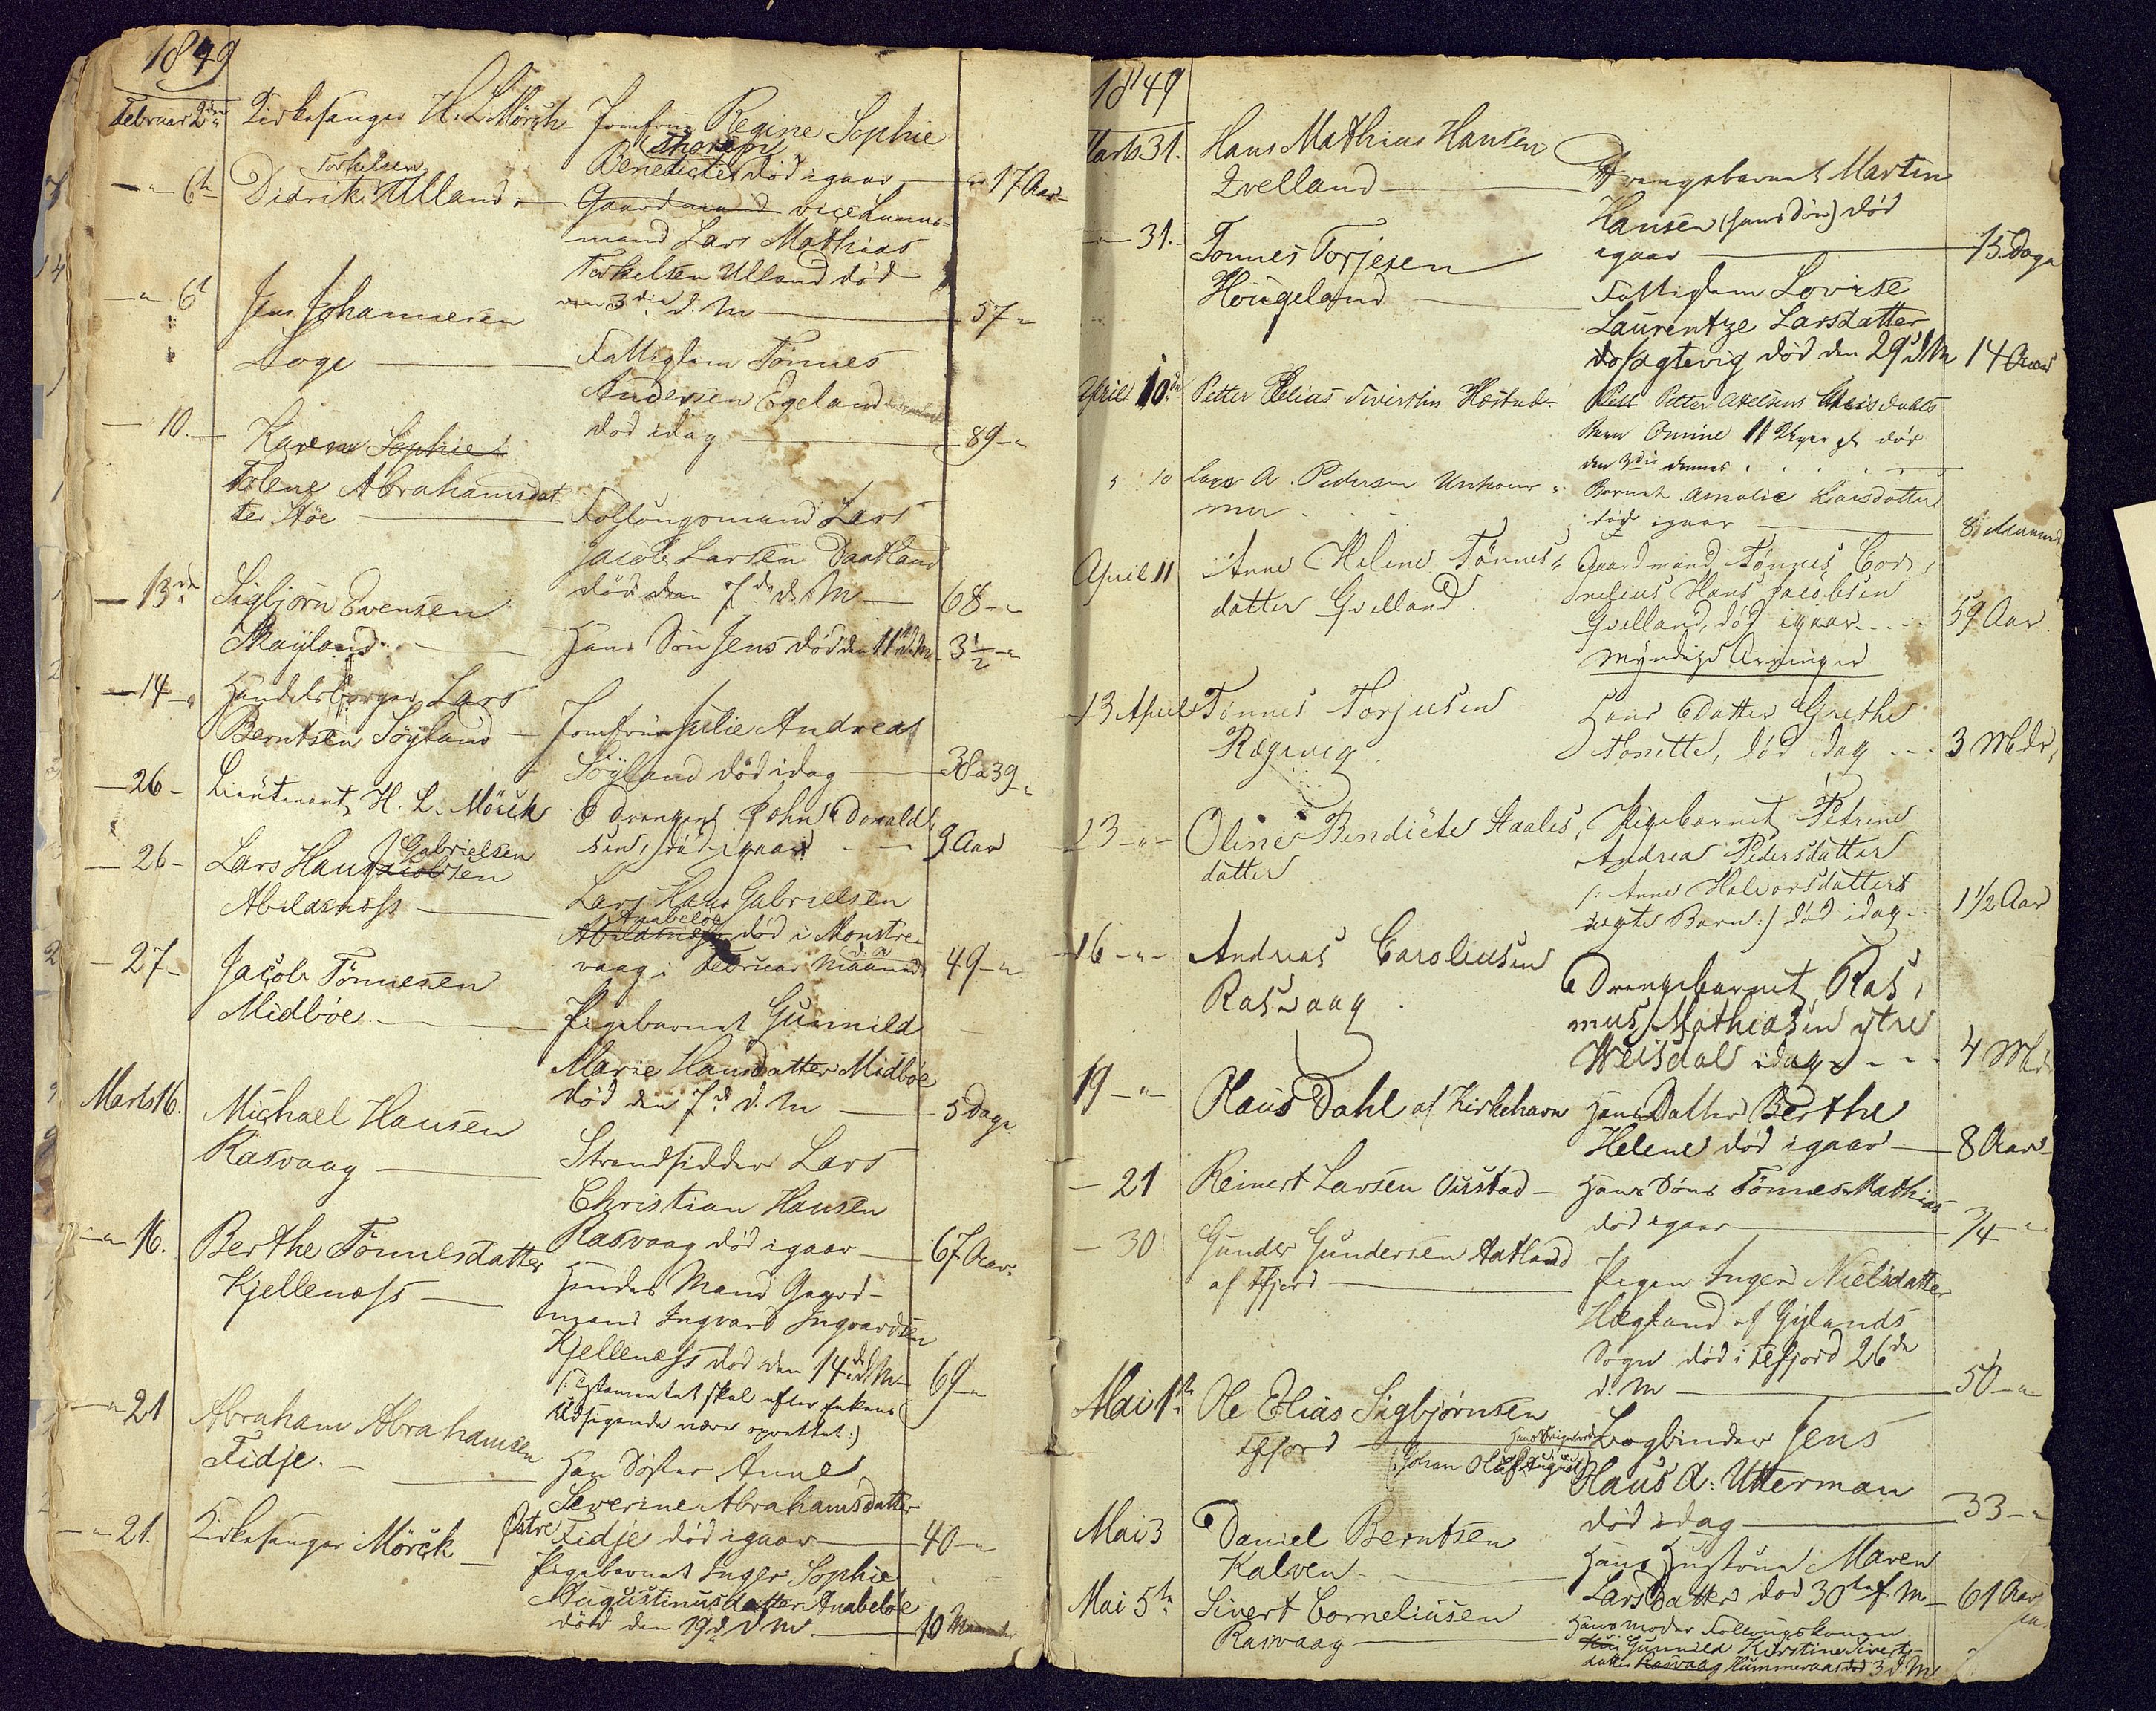 1849
Februar 2den Kirkesanger H. L. Mörch Jomfrue Regine Sophie
Benedicte død igaar 17 Aar
" 6te Didrik Torkelsen Ulland Gaardmand vice Lens-
mand Lars Mathias
Torkelsen Ulland død
den 3die d. M 57 "
" 6te Jens Johannesen
Loge Fattiglem Tönnes
Andersen Egeland
død idag 89 "
10. Karen Sophie
Tolene Abrahamsdat-
ter Stöe Follougsmand Lars
Jacob Larsen Daatland
død den 7de d. M 68 "
13de Sigbjörn Evensen
Skayland Hans Sön Jens død den 11te d. M. 3 1/2 "
14 " Handelsborger Lars
Berntsen Töyland Jomfrue Julie Andrea
Töyland død idag 38 a 39 "
26 Lieutenant H. L. Mörck Drengen John Donald-
sen, død igaar 9 Aar
26 Lars Hans Jacobsen Gabrielsen
Abelsnæss Lars Hans Gabrielsen
Abelsnæss Anabeløe død i Monstre-
vaag i Februar Maaned d. A 49 "
27 Jacob Tönnesen
Midböe Pigebarnet Gunnild
Marie Hansdatter Midböe
død den 7de d. M 5 Dage
Marts 16. Michael Hansen
Rasvaag Strandsidder Lars
Christian Hansen
Rasvaag død igaar 67 Aar
" 16. Berthe Tönnesdatter
Kjellenæss Hendes Mand Gaard-
mand Ingvard Ingvardsen
Kjellenæss død den 14de d. M. 69 "
(: Testamentet skal efter Enkens
Udsigende være oprettet :)
" 21 Abraham Abrahamsen
Fidje. Hans Søster Anne
Severine Abrahamsdatter
Østre Fidje død igaar 40 "
" 21. Kirkesanger Mörck Pigebarnet Inger Sophie
Augustinusdatter Anabeløe
død den 19de d M 10 Maaneder
1849
Marts 31. Hans Mathias Hansen
Qvelland Drengebarnet Martin
Hansen (hans Søn) død
igaar 15 Dage
" 31. Tönnes Torjesen
Höugeland Fattiglem Lovise
Laurentze Larsdatter
død den 29de d M 14 Aar
April 10de Petter Elias Sivertsen Hestad Petter
Barn Omine 11 Uger gl død
den 3die dennes
" 10 Lars A. Pedersen Unham-
mer Barnet Amalie Larsdatter
død igaar 8 Maaned
April 11 Anne Helene Tönnes-
datter Qvelland Gaardmand Tönnes Cor-
nelius Hans Jacobsen
Qvelland, død igaar 59 Aar
Myndige Arvinger
13 April Tönnes Torjusen
Rægevig Hans Datter Grethe
Tonette, død idag 3 Mdr.
13 " Oline Bendicte Staales-
datter Pigebarnet Petrine
Andrea Pedersdatter
(: Anne Halvorsdatters
uægte Barn :) død idag 1 1/2 Aar
16 " Andreas Caroliusen
Rasvaag Drengebarnet Ras-
mus Mathiasen ytre
Weisdal idag 4 Mdr
19 " Hans Dahl af Kirkehavn Hans Datter Berthe
Helene død igaar 8 Aar
21 Reinert Larsen Oüstad Hans Søn Tönnes Mathias
død igaar 3/4 "
30 Gunder Gundersen Aatland
af Fjord Pigen Inger Nielsdatter
Hægland af Gylands
Sogn død i Eefjord 26de
d. M 50 "
Mai 1te Ole Elias Sigbjörnsen
Egfjord Logbinder Jens
(: Johan Oluf August :) Hans A: Utterman
død idag 33 "
Mai 3 Daniel Berntsen
Kalven Hans Hustrue Maren
Larsdatter død 30te f. M 61 Aar
Mai 5te Sivert Corneliusen
Rasvaag Hans Moder Follougskonen
Gunnild Kirstine Siverts-
datter Rasvaag Hummeraas død 3 d. M